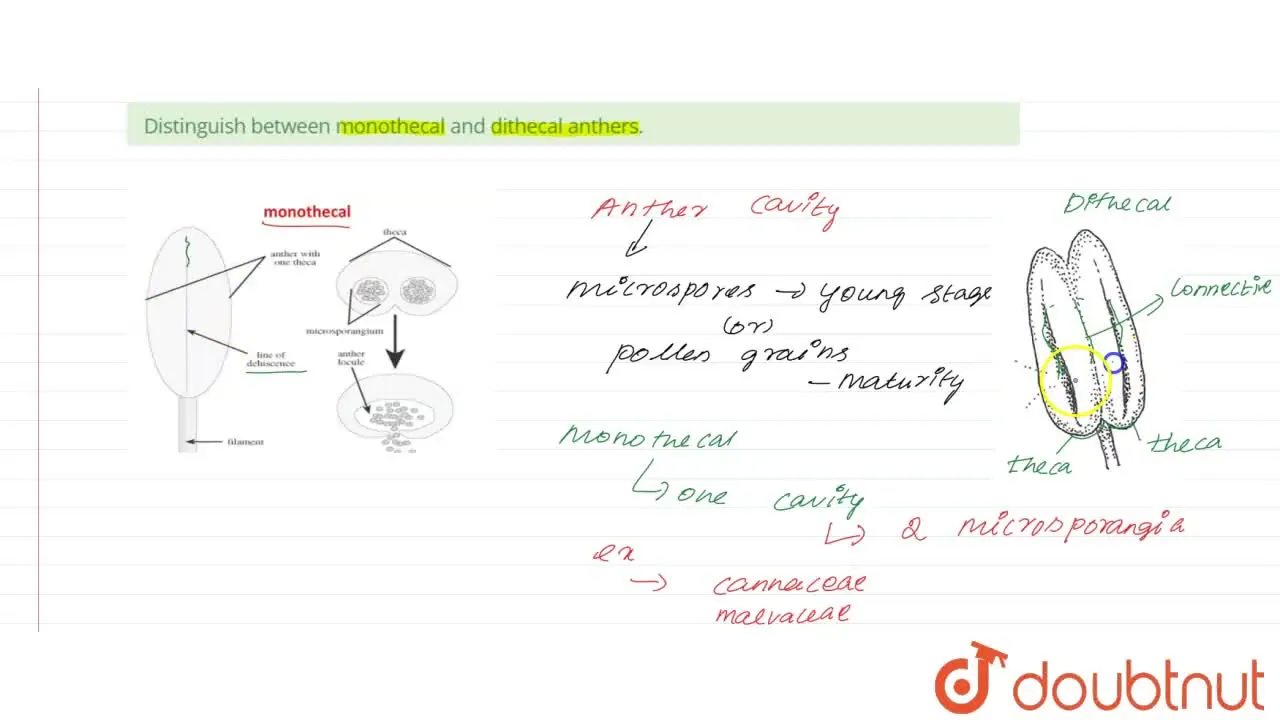 Distinguish between monothecal and dithecal anthers.
monothecal
theca
anther with
one theca
microsporangium
line of
dehiscence
anther
locule
filament
Anther cavity
microspores → young stage
(or)
pollen grains
– maturity
Monothecal
one cavity
2 microsporangia
ex
→ cannaceae
malvaceae
Dithecal
connective
theca
theca
doubtnut